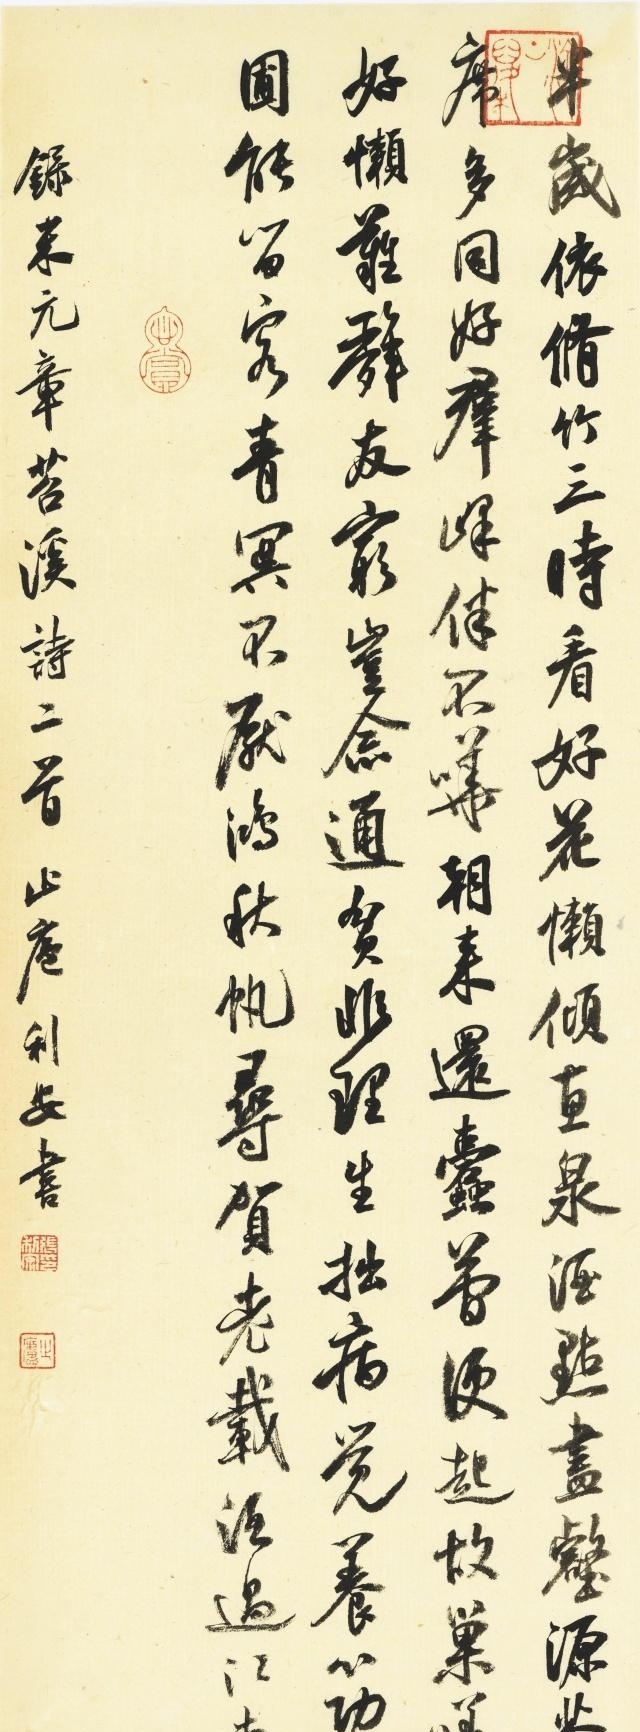 半歲依脩竹三時看好花懶傾惠泉酒點盡壑源
席多同好羣峰伴不嘩朝來還蠹簡便起故巢
好懶難辭友窮豈念通貧非理生拙病覺養心功
圃能留客青冥不厭鴻秋帆尋賀老載酒過江
錄米元章苕溪詩二首 止庵利安書